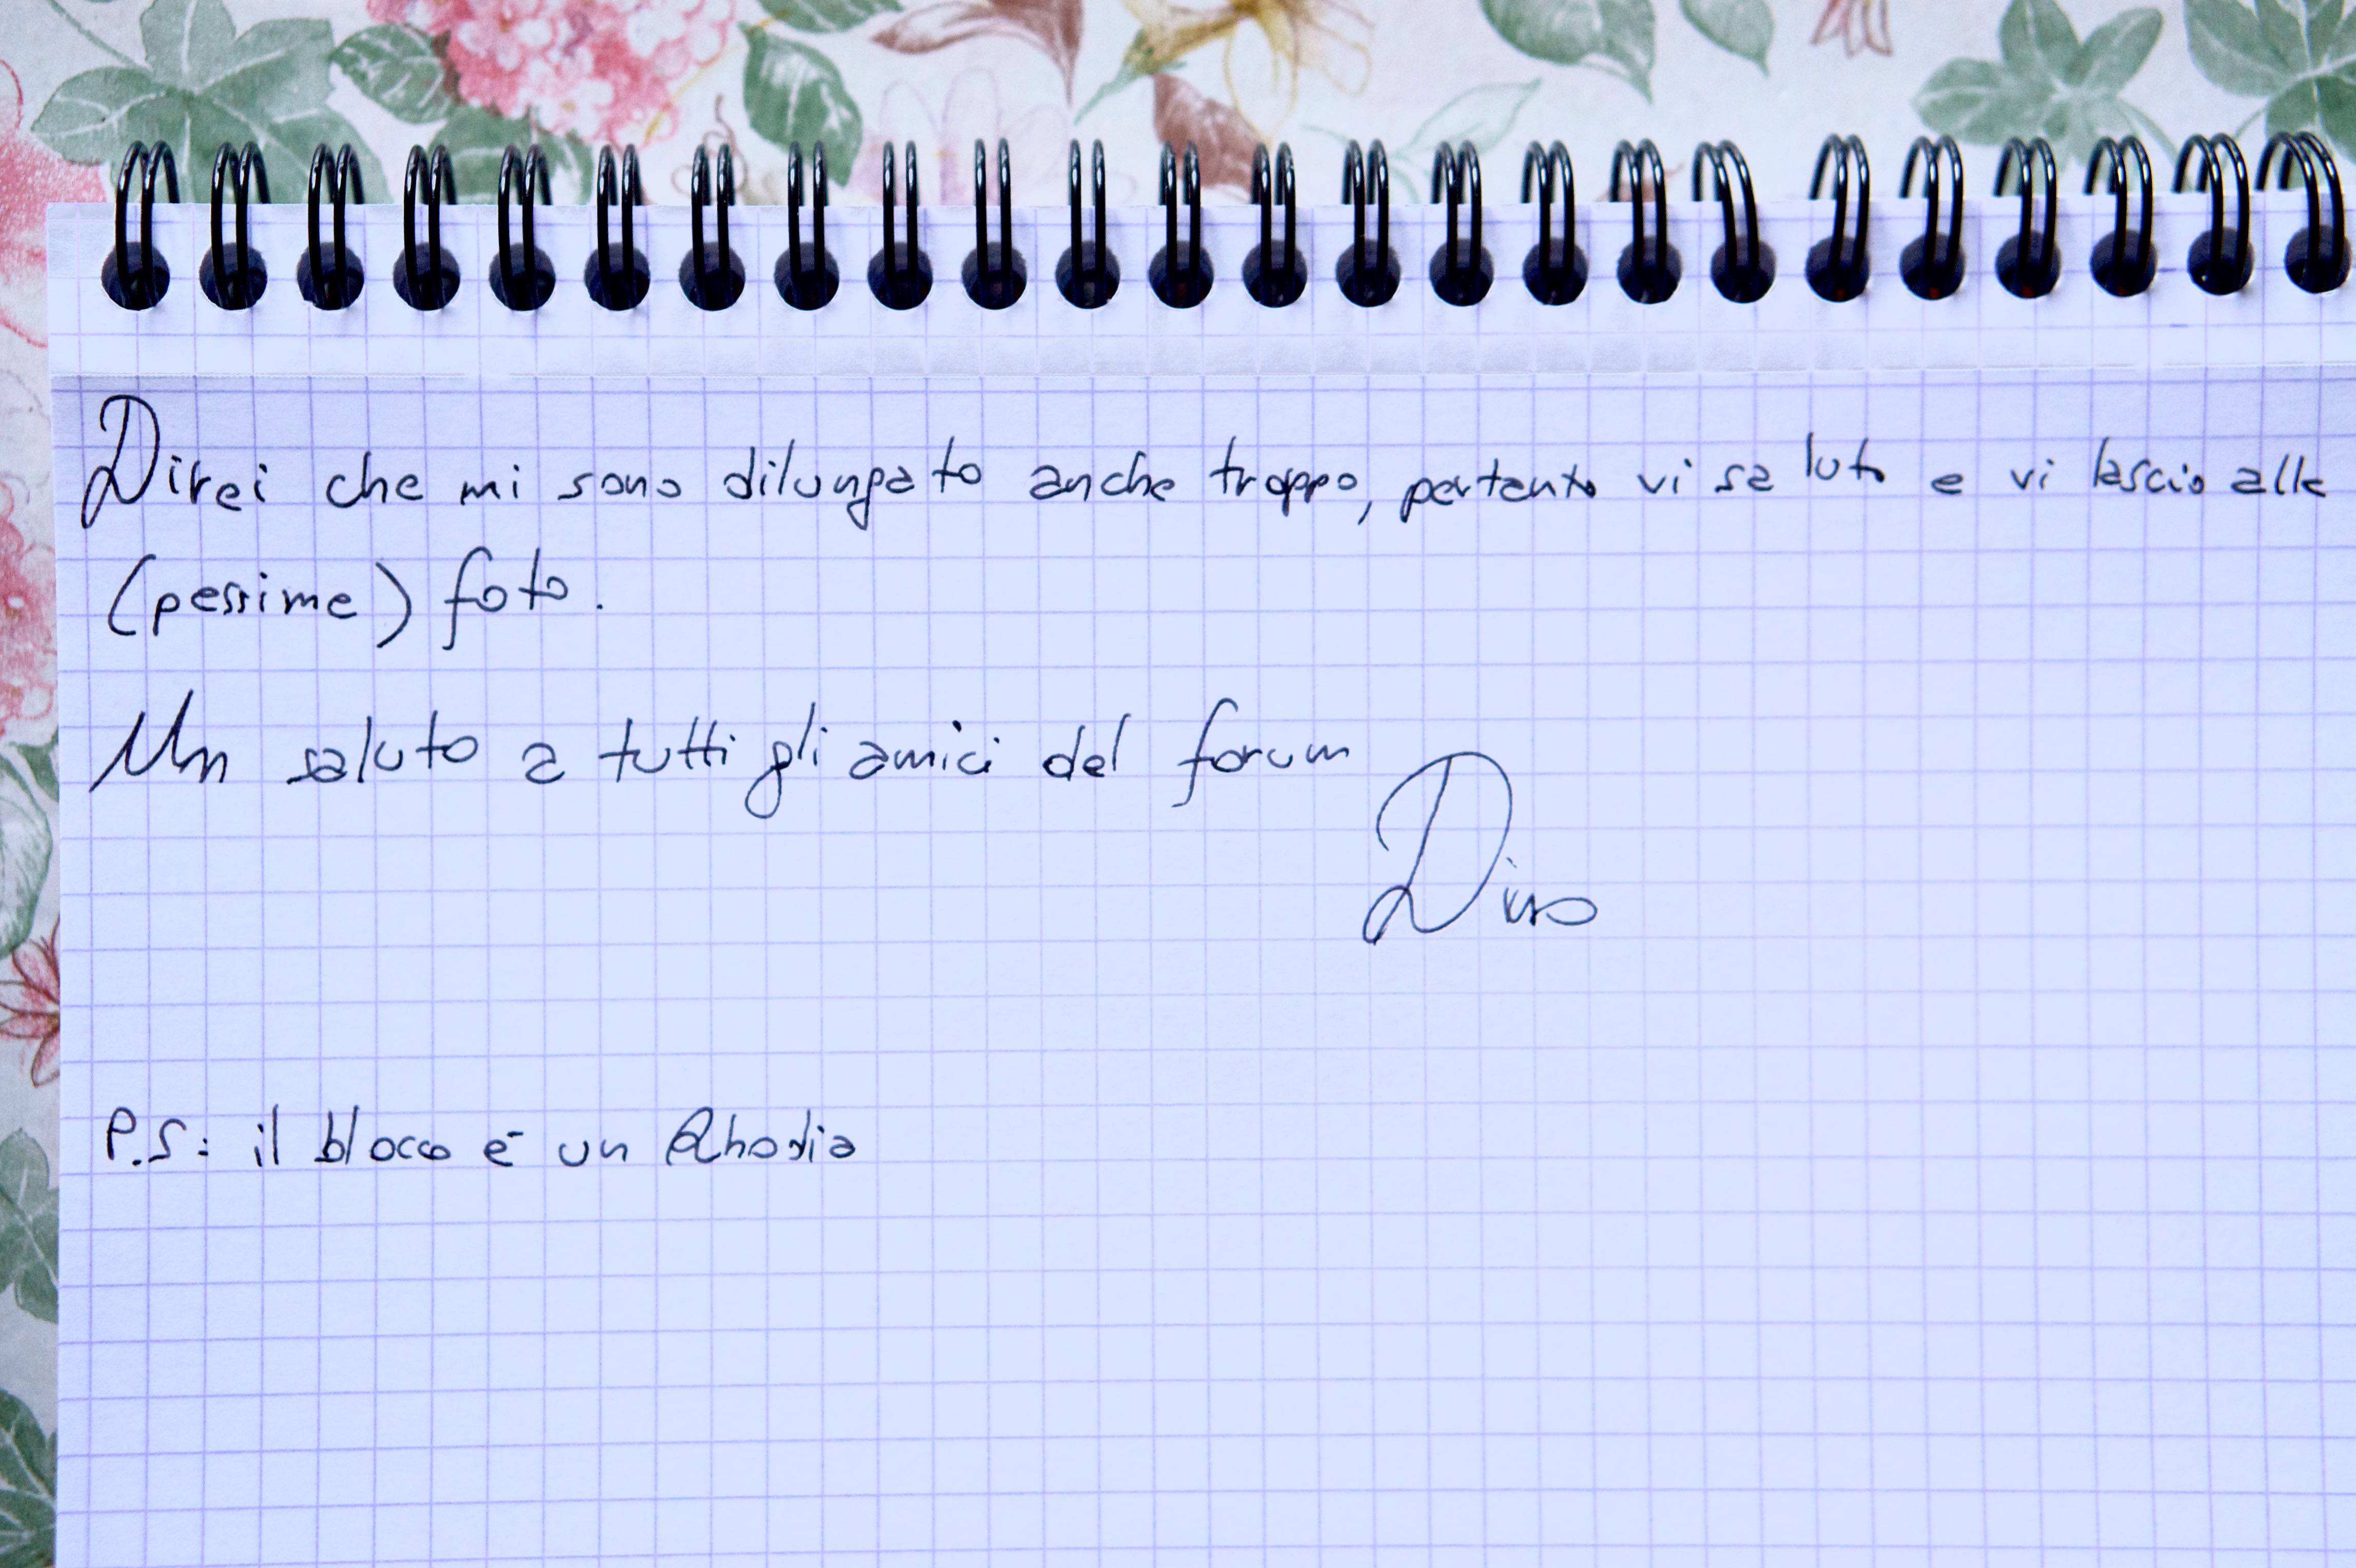 Direi che mi sono dilungato anche troppo, pertanto vi saluto e vi lascio alle
(pessime) foto.
Un saluto a tutti gli amici del forum
Dino
P.S: il blocco è un Rhodia